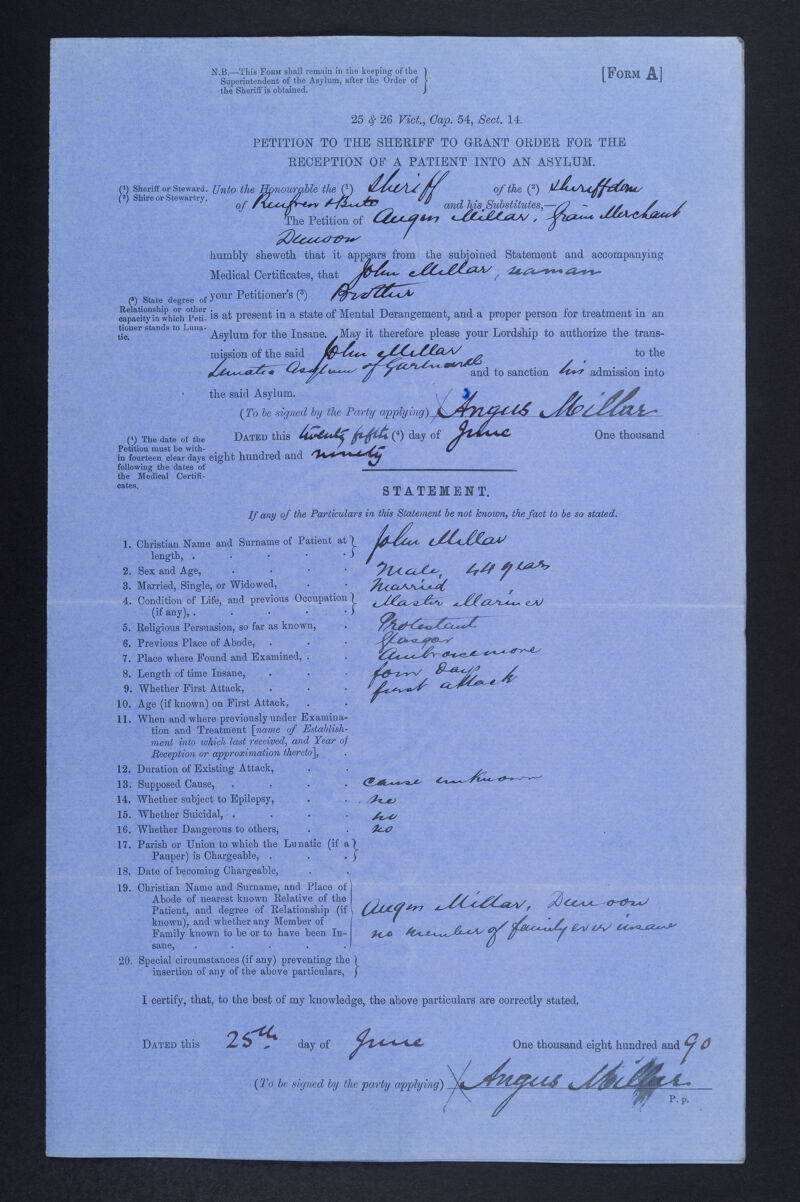 N.B.—This Form shall remain in the keeping of the
Superintendent of the Asylum, after the Order of
the Sheriff is obtained.
[Form A]
25 & 26 Vict., Cap. 54, Sect. 14.
PETITION TO THE SHERIFF TO GRANT ORDER FOR THE
RECEPTION OF A PATIENT INTO AN ASYLUM.
(¹) Sheriff or Steward.
(²) Shire or Stewartry.
Unto the Honourable the (¹) Sheriff of the (²) Sheriffdom
of Renfrew & Bute and his Substitutes,—
The Petition of Angus Millar, Grain Merchant
Dunoon
humbly sheweth that it appears from the subjoined Statement and accompanying
Medical Certificates, that John Millar, seaman
(³) State degree of
Relationship or other
capacity in which Peti-
tioner stands to Luna-
tic.
your Petitioner's (³) Brother
is at present in a state of Mental Derangement, and a proper person for treatment in an
Asylum for the Insane. May it therefore please your Lordship to authorize the trans-
mission of the said John Millar to the
Lunatic Asylum of Gartnavel and to sanction his admission into
the said Asylum.
(To be signed by the Party applying) Angus Millar
(⁴) The date of the
Petition must be with-
in fourteen clear days
following the dates of
the Medical Certifi-
cates.
Dated this twenty fifth (⁴) day of June One thousand
eight hundred and ninety
STATEMENT.
If any of the Particulars in this Statement be not known, the fact to be so stated.
1. Christian Name and Surname of Patient at
length, . . . . . John Millar
2. Sex and Age, . . . . Male, 44 years
3. Married, Single, or Widowed, . . Married
4. Condition of Life, and previous Occupation
(if any), . . . . . Master Mariner
5. Religious Persuasion, so far as known, . Protestant
6. Previous Place of Abode, . . . Glasgow
7. Place where Found and Examined, . . Ambrosemore
8. Length of time Insane, . . . four Days
9. Whether First Attack, . . . first attack
10. Age (if known) on First Attack, . .
11. When and where previously under Examina-
tion and Treatment [name of Establish-
ment into which last received, and Year of
Reception or approximation thereto], .
12. Duration of Existing Attack, . .
13. Supposed Cause, . . . . cause unknown
14. Whether subject to Epilepsy, . . no
15. Whether Suicidal, . . . . no
16. Whether Dangerous to others, . . no
17. Parish or Union to which the Lunatic (if a
Pauper) is Chargeable, . . .
18. Date of becoming Chargeable, . .
19. Christian Name and Surname, and Place of
Abode of nearest known Relative of the
Patient, and degree of Relationship (if
known), and whether any Member of
Family known to be or to have been In-
sane, . . . . .
Angus Millar, Dunoon
no member of family ever insane
20. Special circumstances (if any) preventing the
insertion of any of the above particulars,
I certify, that, to the best of my knowledge, the above particulars are correctly stated.
Dated this 25th day of June One thousand eight hundred and 90
(To be signed by the party applying) Angus Millar
P. p.